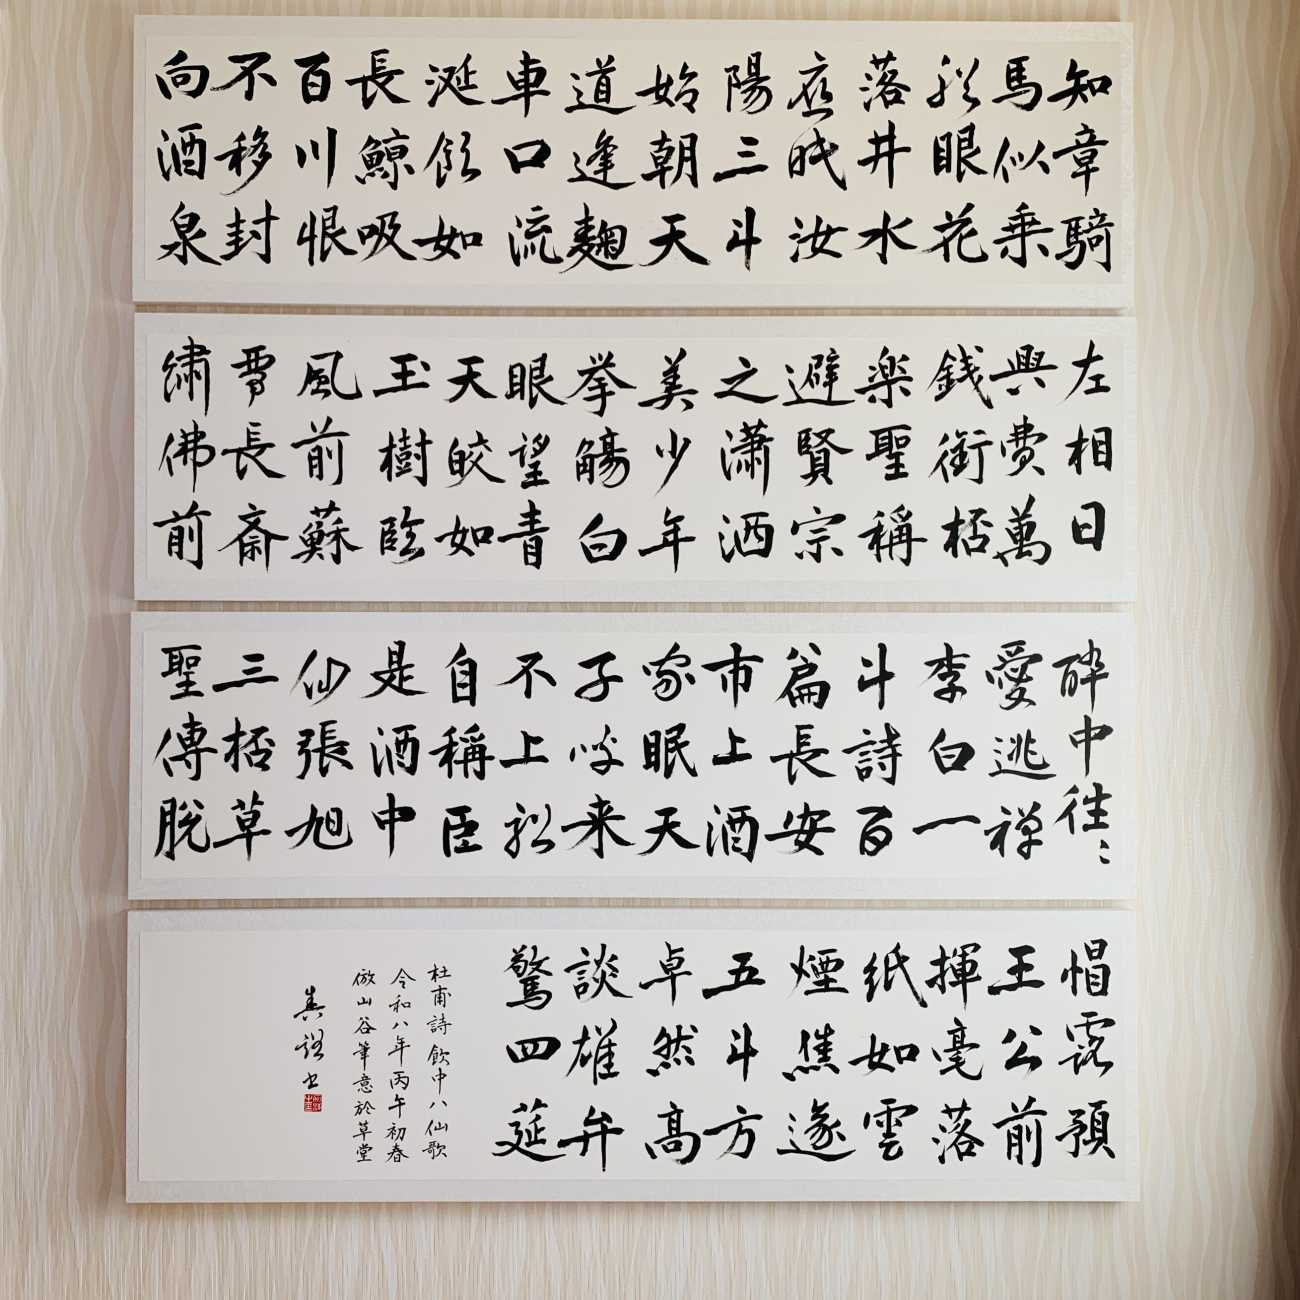 知章騎
馬似乗
舩眼花
落井水
底眠汝
陽三斗
始朝天
道逢麹
車口流
涎飲如
長鯨吸
百川恨
不移封
向酒泉
左相日
興費萬
銭銜桮
楽聖稱
避賢宗
之瀟洒
美少年
挙觴白
眼望青
天皎如
玉樹臨
風前蘇
晋長斎
繍佛前
酔中往々
愛逃禅
李白一
斗詩百
篇長安
市上酒
家眠天
子呼来
不上舩
自稱臣
是酒中
仙張旭
三桮草
聖傳脱
帽露頂
王公前
揮毫落
紙如雲
煙焦遂
五斗方
卓然高
談雄弁
驚四莚
杜甫詩 飲中八仙歌
令和八年丙午初春
倣山谷筆意於草堂
書